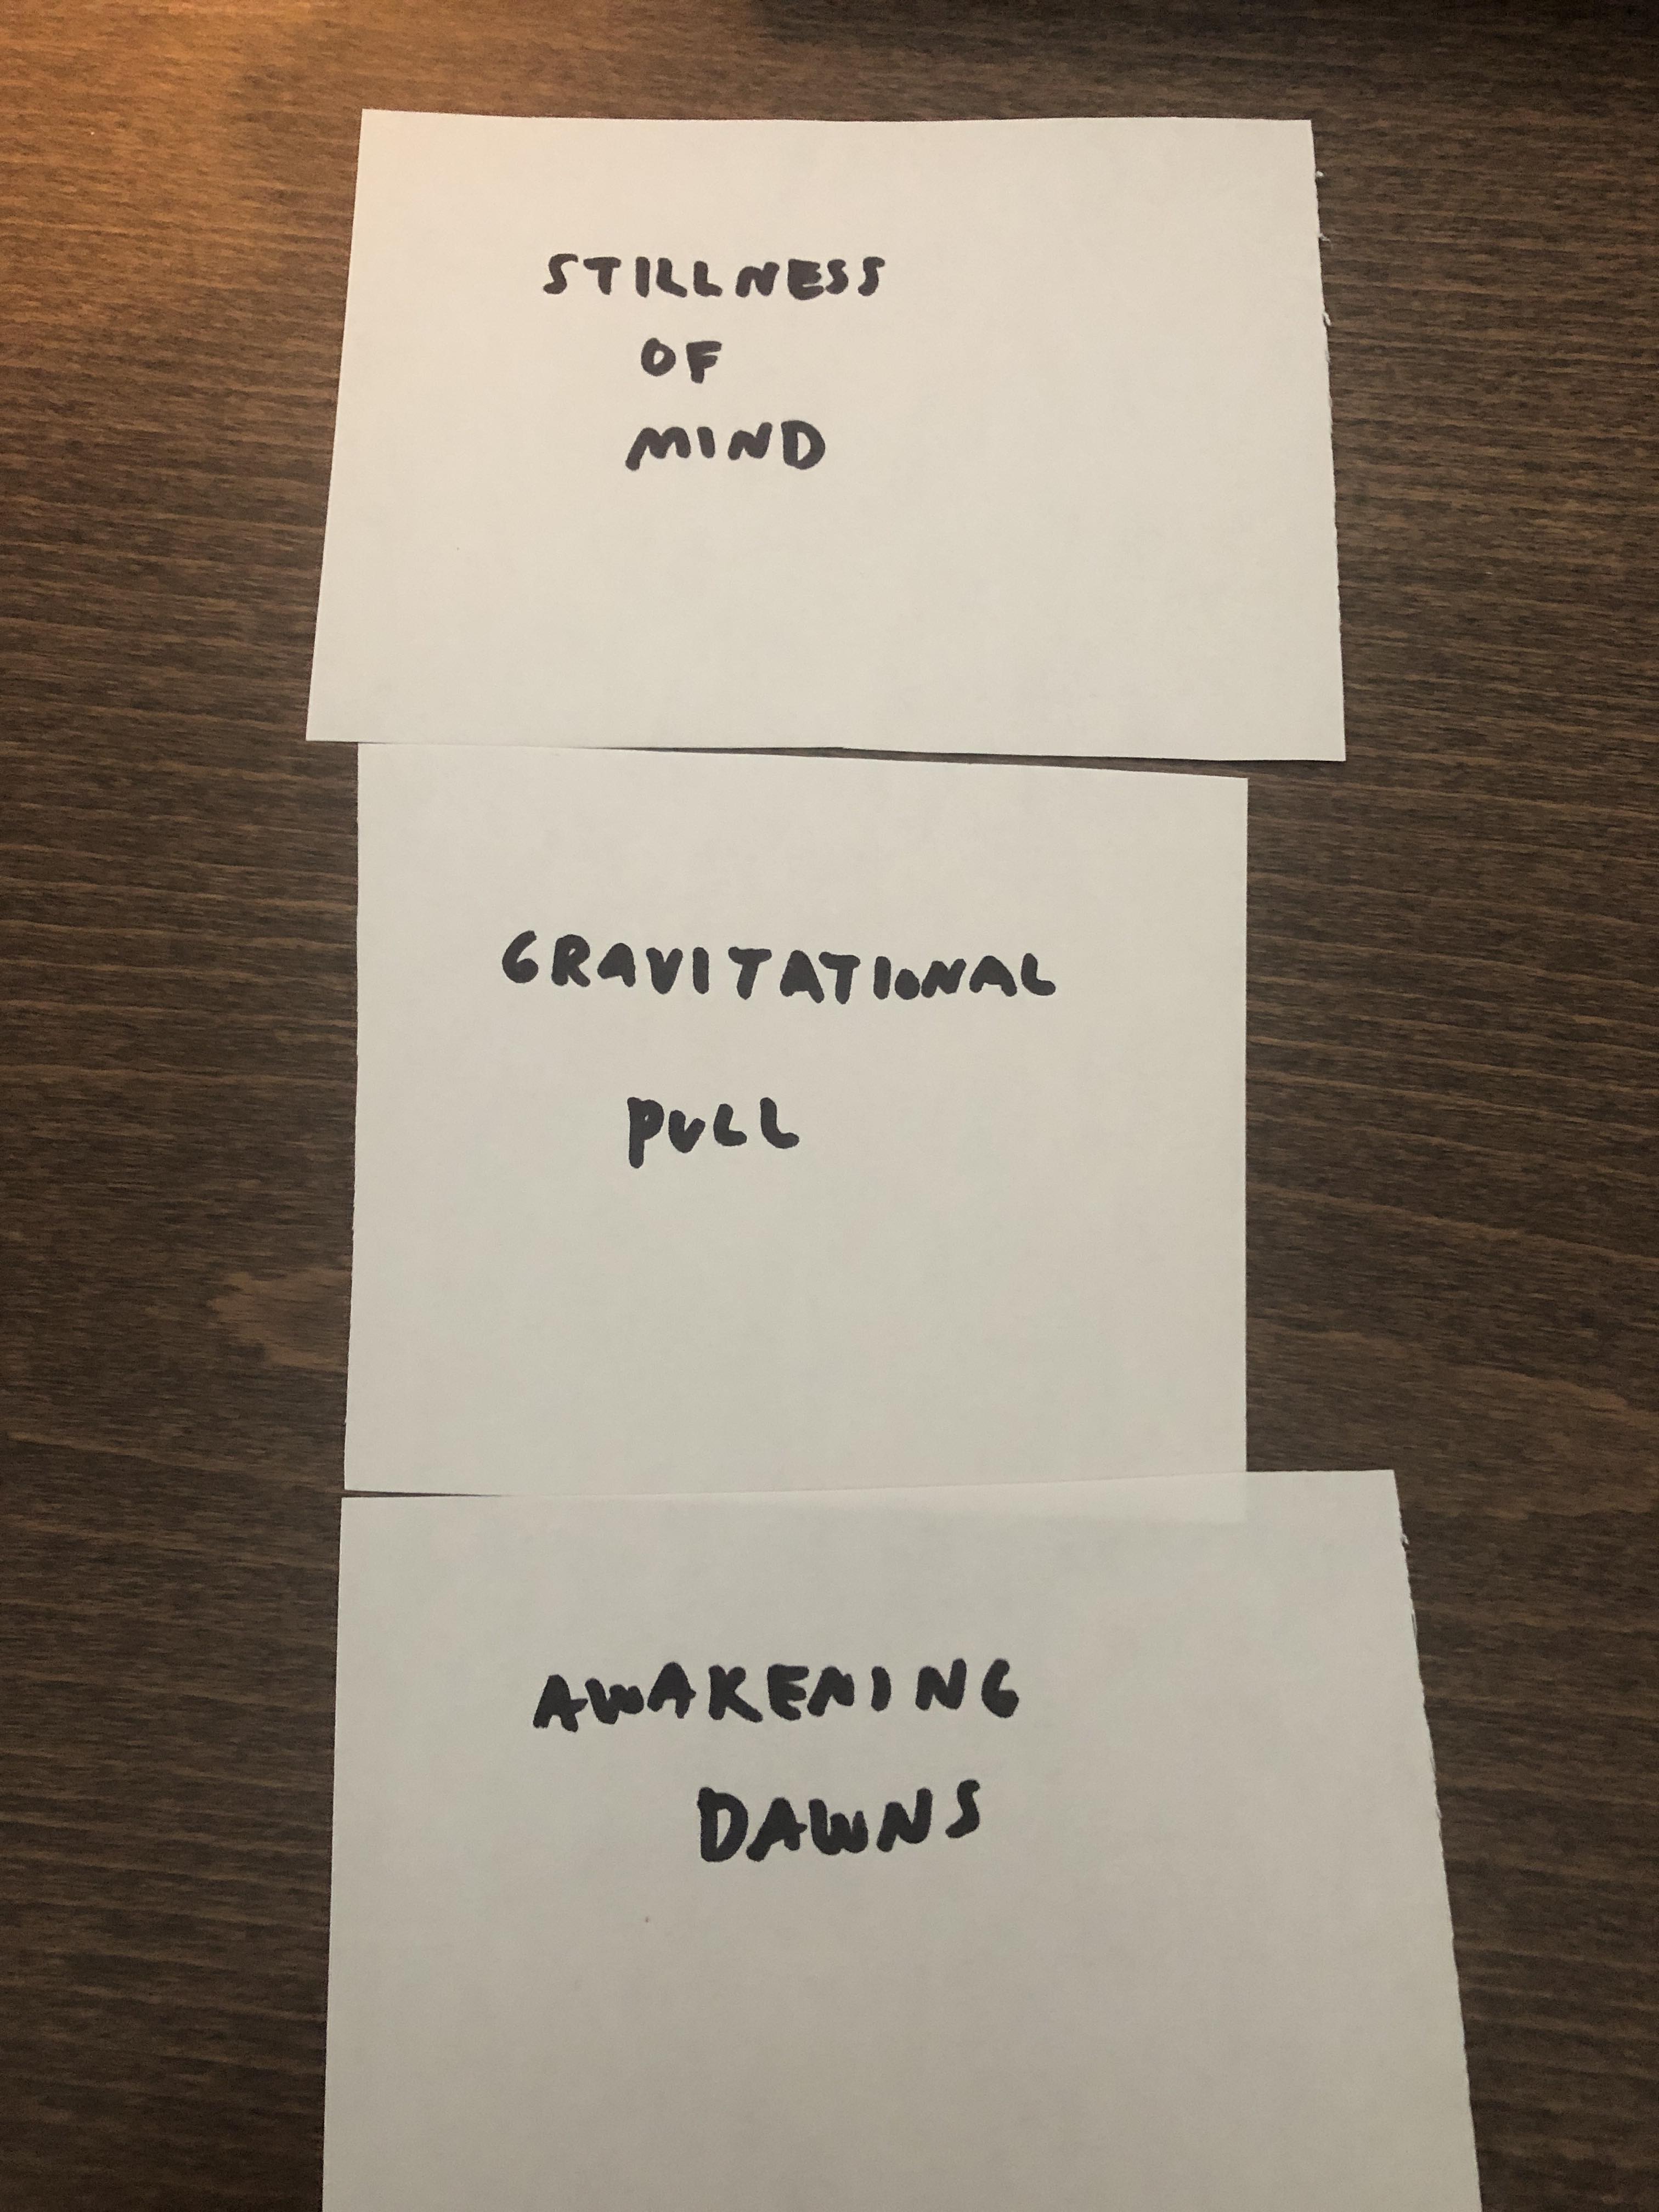 STILLNESS
OF
MIND
GRAVITATIONAL
PULL
AWAKENING
DAWNS